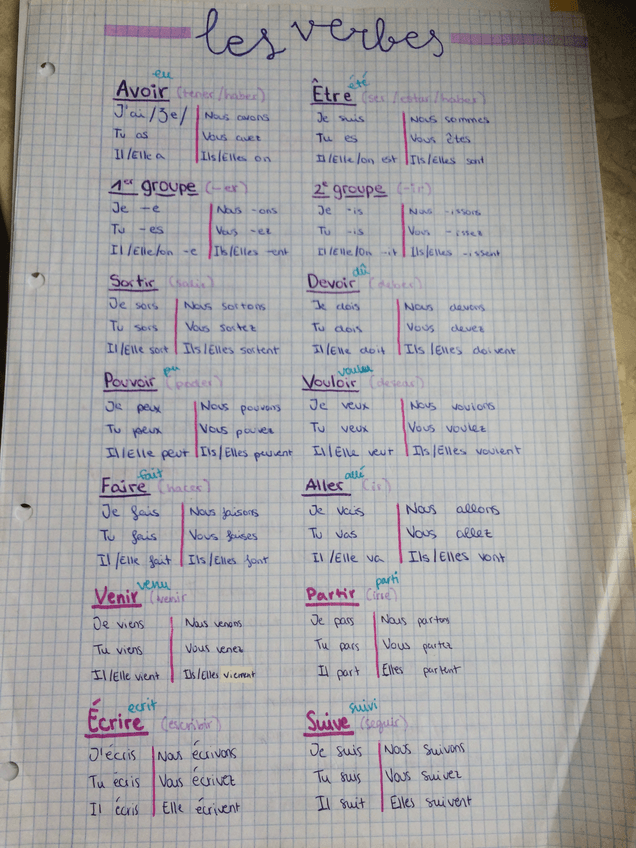 les verbes
eu
Avoir (tener/haber)
J'ai /Je/ Nous avons
Tu as Vous avez
Il/Elle a Ils/Elles on
été
Être (ser/estar/haber)
Je suis Nous sommes
Tu es Vous êtes
Il/Elle/on est Ils/Elles sont
1er groupe (-er)
Je -e Nous -ons
Tu -es Vous -ez
Il/Elle/on -e Ils/Elles -ent
2e groupe (-ir)
Je -is Nous -issons
Tu -is Vous -issez
Il/Elle/On -it Ils/Elles -issent
Sortir (salir)
Je sors Nous sortons
Tu sors Vous sortez
Il/Elle sort Ils/Elles sortent
dû
Devoir (deber)
Je dois Nous devons
Tu dois Vous devez
Il/Elle doit Ils/Elles doivent
pu
Pouvoir (poder)
Je peux Nous pouvons
Tu peux Vous pouvez
Il/Elle peut Ils/Elles peuvent
voulu
Vouloir (desear)
Je veux Nous voulons
Tu veux Vous voulez
Il/Elle veut Ils/Elles veulent
fait
Faire (hacer)
Je fais Nous faisons
Tu fais Vous faises
Il/Elle fait Ils/Elles font
allé
Aller (ir)
Je vais Nous allons
Tu vas Vous allez
Il/Elle va Ils/Elles vont
venu
Venir (venir
Je viens Nous venons
Tu viens Vous venez
Il/Elle vient Ils/Elles viennent
parti
Partir (irse)
Je pars Nous partons
Tu pars Vous partez
Il part Elles partent
ecrit
Écrire (escribir)
J'écris Nous écrivons
Tu écris Vous écrivez
Il écris Elle écrivent
suivi
Suive (seguir)
Je suis Nous suivons
Tu suis Vous suivez
Il suit Elles suivent